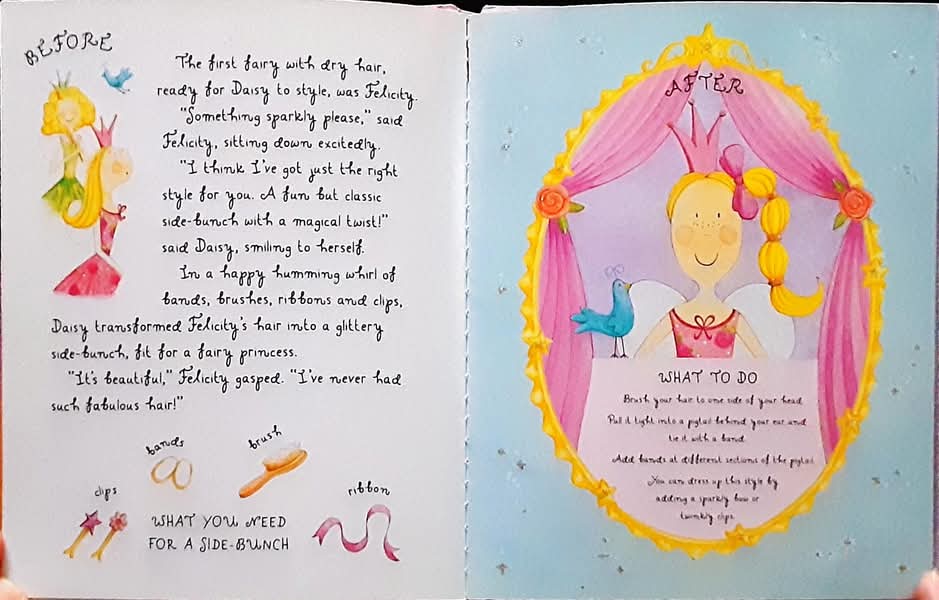 BEFORE
The first fairy with dry hair,
ready for Daisy to style, was Felicity.
"Something sparkly please," said
Felicity, sitting down excitedly.
"I think I've got just the right
style for you. A fun but classic
side-bunch with a magical twist!"
said Daisy, smiling to herself.
In a happy humming whirl of
bands, brushes, ribbons and clips,
Daisy transformed Felicity's hair into a glittery
side-bunch, fit for a fairy princess.
"It's beautiful," Felicity gasped. "I've never had
such fabulous hair!"
bands
brush
clips
ribbon
WHAT YOU NEED
FOR A SIDE-BUNCH
AFTER
WHAT TO DO
Brush your hair to one side of your head.
Pull it tight into a pigtail behind your ear and
tie it with a band.
Add bands at different sections of the pigtail.
You can dress up this style by
adding a sparkly bow or
twinkly clips.